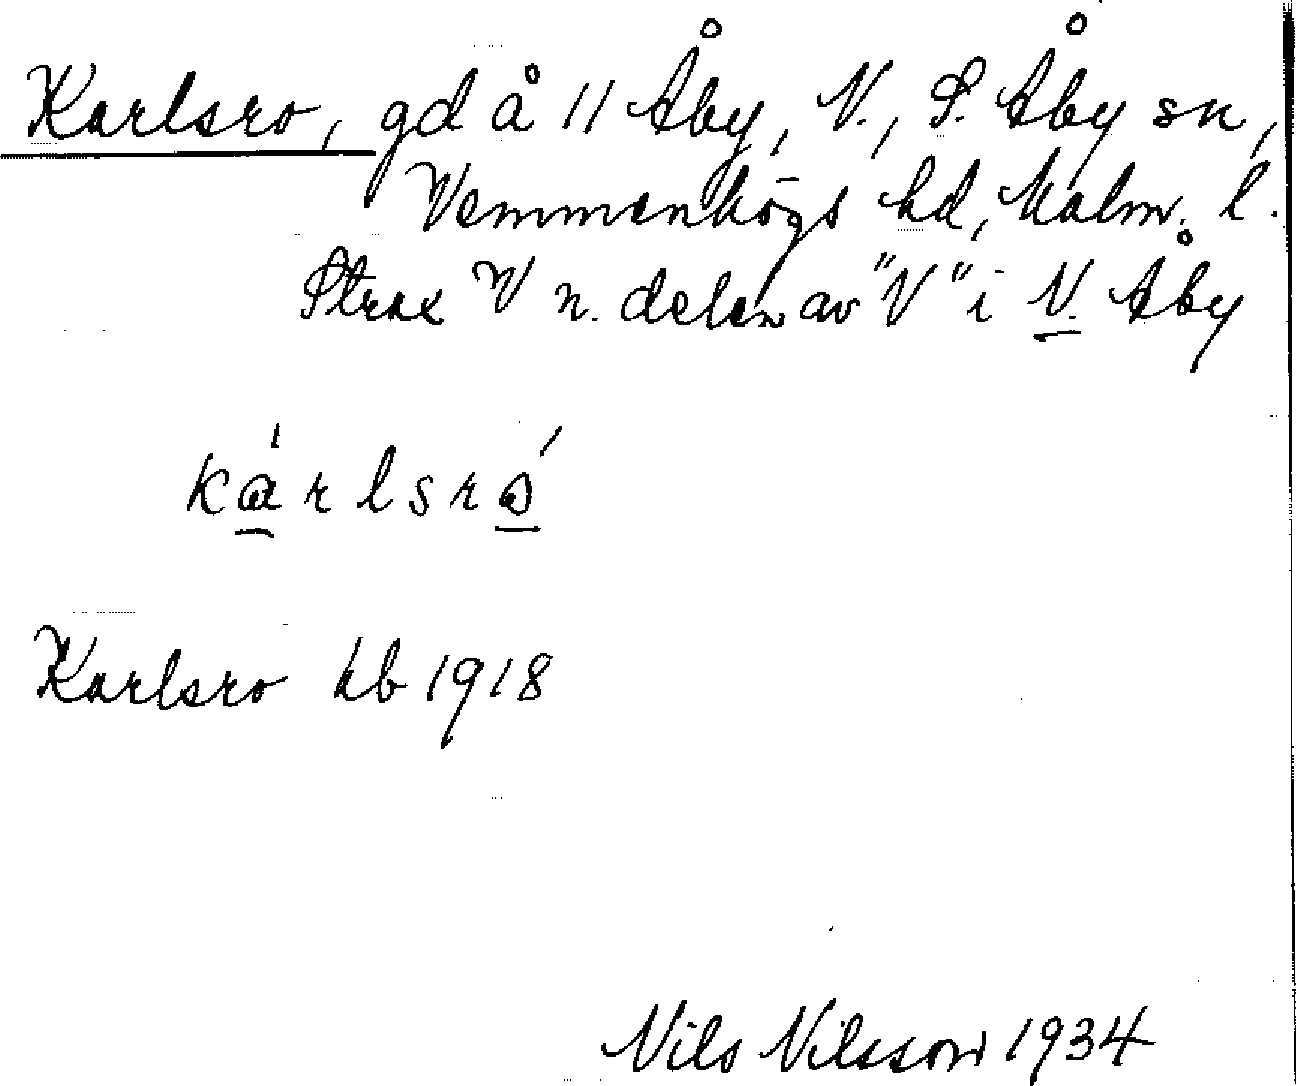 Karlsro, gd å 11 Åby, V., S. Åby sn,
Vemmenhögs hd, Malm. l.
Strax V n. delen av "V" i V. Åby
kárlsró
Karlsro kb 1918
Nils Nilsson 1934